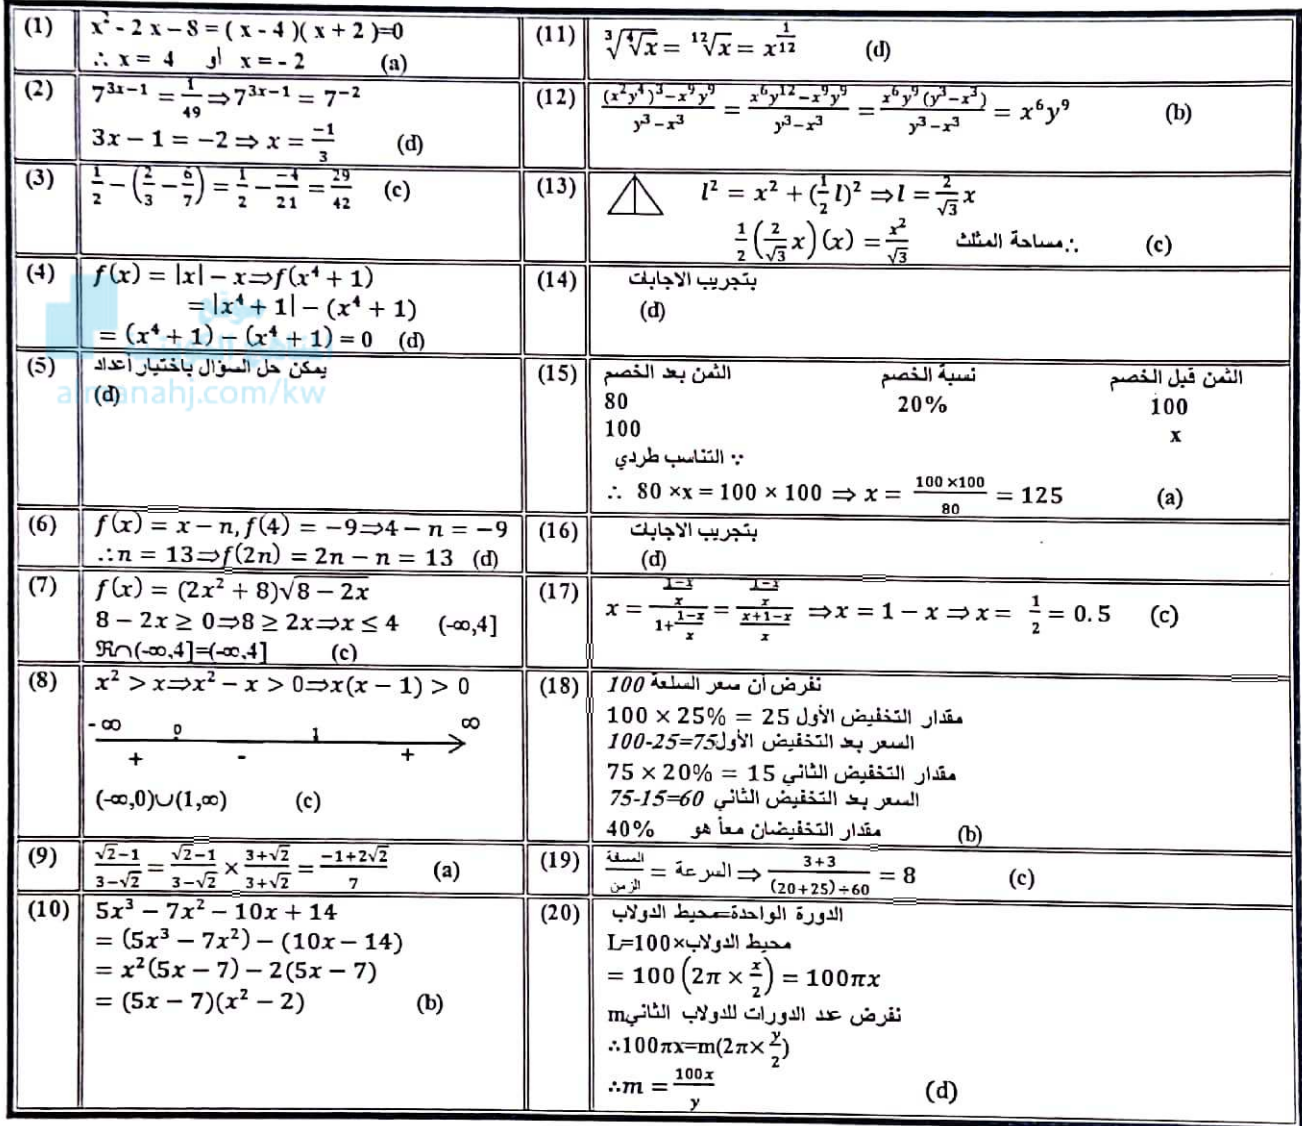 (1) x² - 2 x – 8 = ( x - 4 )( x + 2 )=0
∴ x = 4 أو x = - 2 (a)
(2) 7^{3x−1} = 1/49 ⇒ 7^{3x−1} = 7^{−2}
3x − 1 = −2 ⇒ x = −1/3 (d)
(3) 1/2 − (2/3 − 6/7) = 1/2 − −4/21 = 29/42 (c)
(4) f(x) = |x| − x ⇒ f(x⁴ + 1)
= |x⁴ + 1| − (x⁴ + 1)
= (x⁴ + 1) − (x⁴ + 1) = 0 (d)
(5) يمكن حل السؤال باختيار أعداد
(d)
almanahj.com/kw
(6) f(x) = x − n, f(4) = −9 ⇒ 4 − n = −9
∴n = 13 ⇒ f(2n) = 2n − n = 13 (d)
(7) f(x) = (2x² + 8)√(8 − 2x)
8 − 2x ≥ 0 ⇒ 8 ≥ 2x ⇒ x ≤ 4 (-∞,4]
ℜ∩(-∞,4]=(-∞,4] (c)
(8) x² > x ⇒ x² − x > 0 ⇒ x(x − 1) > 0
- ∞ 0 1 ∞
+ - +
(-∞,0)∪(1,∞) (c)
(9) (√2−1)/(3−√2) = (√2−1)/(3−√2) × (3+√2)/(3+√2) = (−1+2√2)/7 (a)
(10) 5x³ − 7x² − 10x + 14
= (5x³ − 7x²) − (10x − 14)
= x²(5x − 7) − 2(5x − 7)
= (5x − 7)(x² − 2) (b)
(11) ∛(∜x) = ¹²√x = x^{1/12} (d)
(12) ((x²y⁴)³−x⁹y⁹)/(y³−x³) = (x⁶y¹²−x⁹y⁹)/(y³−x³) = (x⁶y⁹(y³−x³))/(y³−x³) = x⁶y⁹ (b)
(13) l² = x² + (1/2 l)² ⇒ l = 2/√3 x
∴مساحة المثلث 1/2 (2/√3 x)(x) = x²/√3 (c)
(14) بتجريب الاجابات
(d)
(15) الثمن قبل الخصم نسبة الخصم الثمن بعد الخصم
80 20% 100
100 x
∵ التناسب طردي
∴ 80 ×x = 100 × 100 ⇒ x = (100 ×100)/80 = 125 (a)
(16) بتجريب الاجابات
(d)
(17) x = ((1−x)/x)/(1+(1−x)/x) = ((1−x)/x)/((x+1−x)/x) ⇒ x = 1 − x ⇒ x = 1/2 = 0.5 (c)
(18) نفرض أن سعر السلعة 100
مقدار التخفيض الأول 100 × 25% = 25
السعر بعد التخفيض الأول 100-25=75
مقدار التخفيض الثاني 75 × 20% = 15
السعر بعد التخفيض الثاني 75-15=60
مقدار التخفيضان معاً هو 40% (b)
(19) المسفة/الزمن = السرعة ⇒ (3+3)/((20+25)÷60) = 8 (c)
(20) الدورة الواحدة=محيط الدولاب
L=100×محيط الدولاب
= 100 (2π × x/2) = 100πx
نفرض عدد الدورات للدولاب الثاني m
∴100πx=m(2π× y/2)
∴m = 100x/y (d)